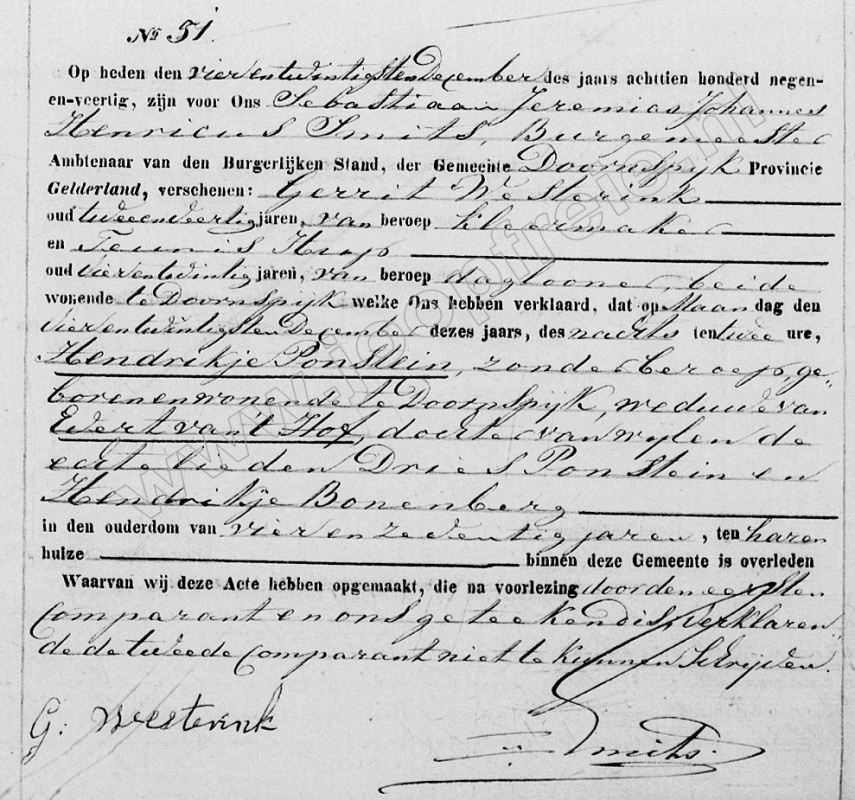 No 51.
Op heden den vierentwintigsten December des jaars achttien honderd negen-
en-veertig, zijn voor Ons Sebastiaan Jeremias Johannes
Henricus Smits, Burgemeester
Ambtenaar van den Burgerlijken Stand, der Gemeente Doornspyk Provincie
Gelderland, verschenen: Gerrit Westerink
oud tweeenveertig jaren, van beroep kleermaker
en Teunis Hup
oud vierentwintig jaren, van beroep daglooner, beide
wonende te Doornspyk welke Ons hebben verklaard, dat op Maandag den
vierentwintigsten December dezes jaars, des nachts ten twee ure,
Hendrikje Ponstein, zonder beroep, ge-
boren en wonende te Doornspyk, weduwe van
Evert van't Hof, dochter van wylen de
echtelieden Dries Ponstein en
Hendrikje Bonenberg
in den ouderdom van vier en zeventig jaren, ten haren
huize binnen deze Gemeente is overleden
Waarvan wij deze Acte hebben opgemaakt, die na voorlezing door den eersten
Comparant en ons geteekend is, verklaren-
de de tweede Comparant niet te kunnen Schrijven.
G: Westerink
Smits.